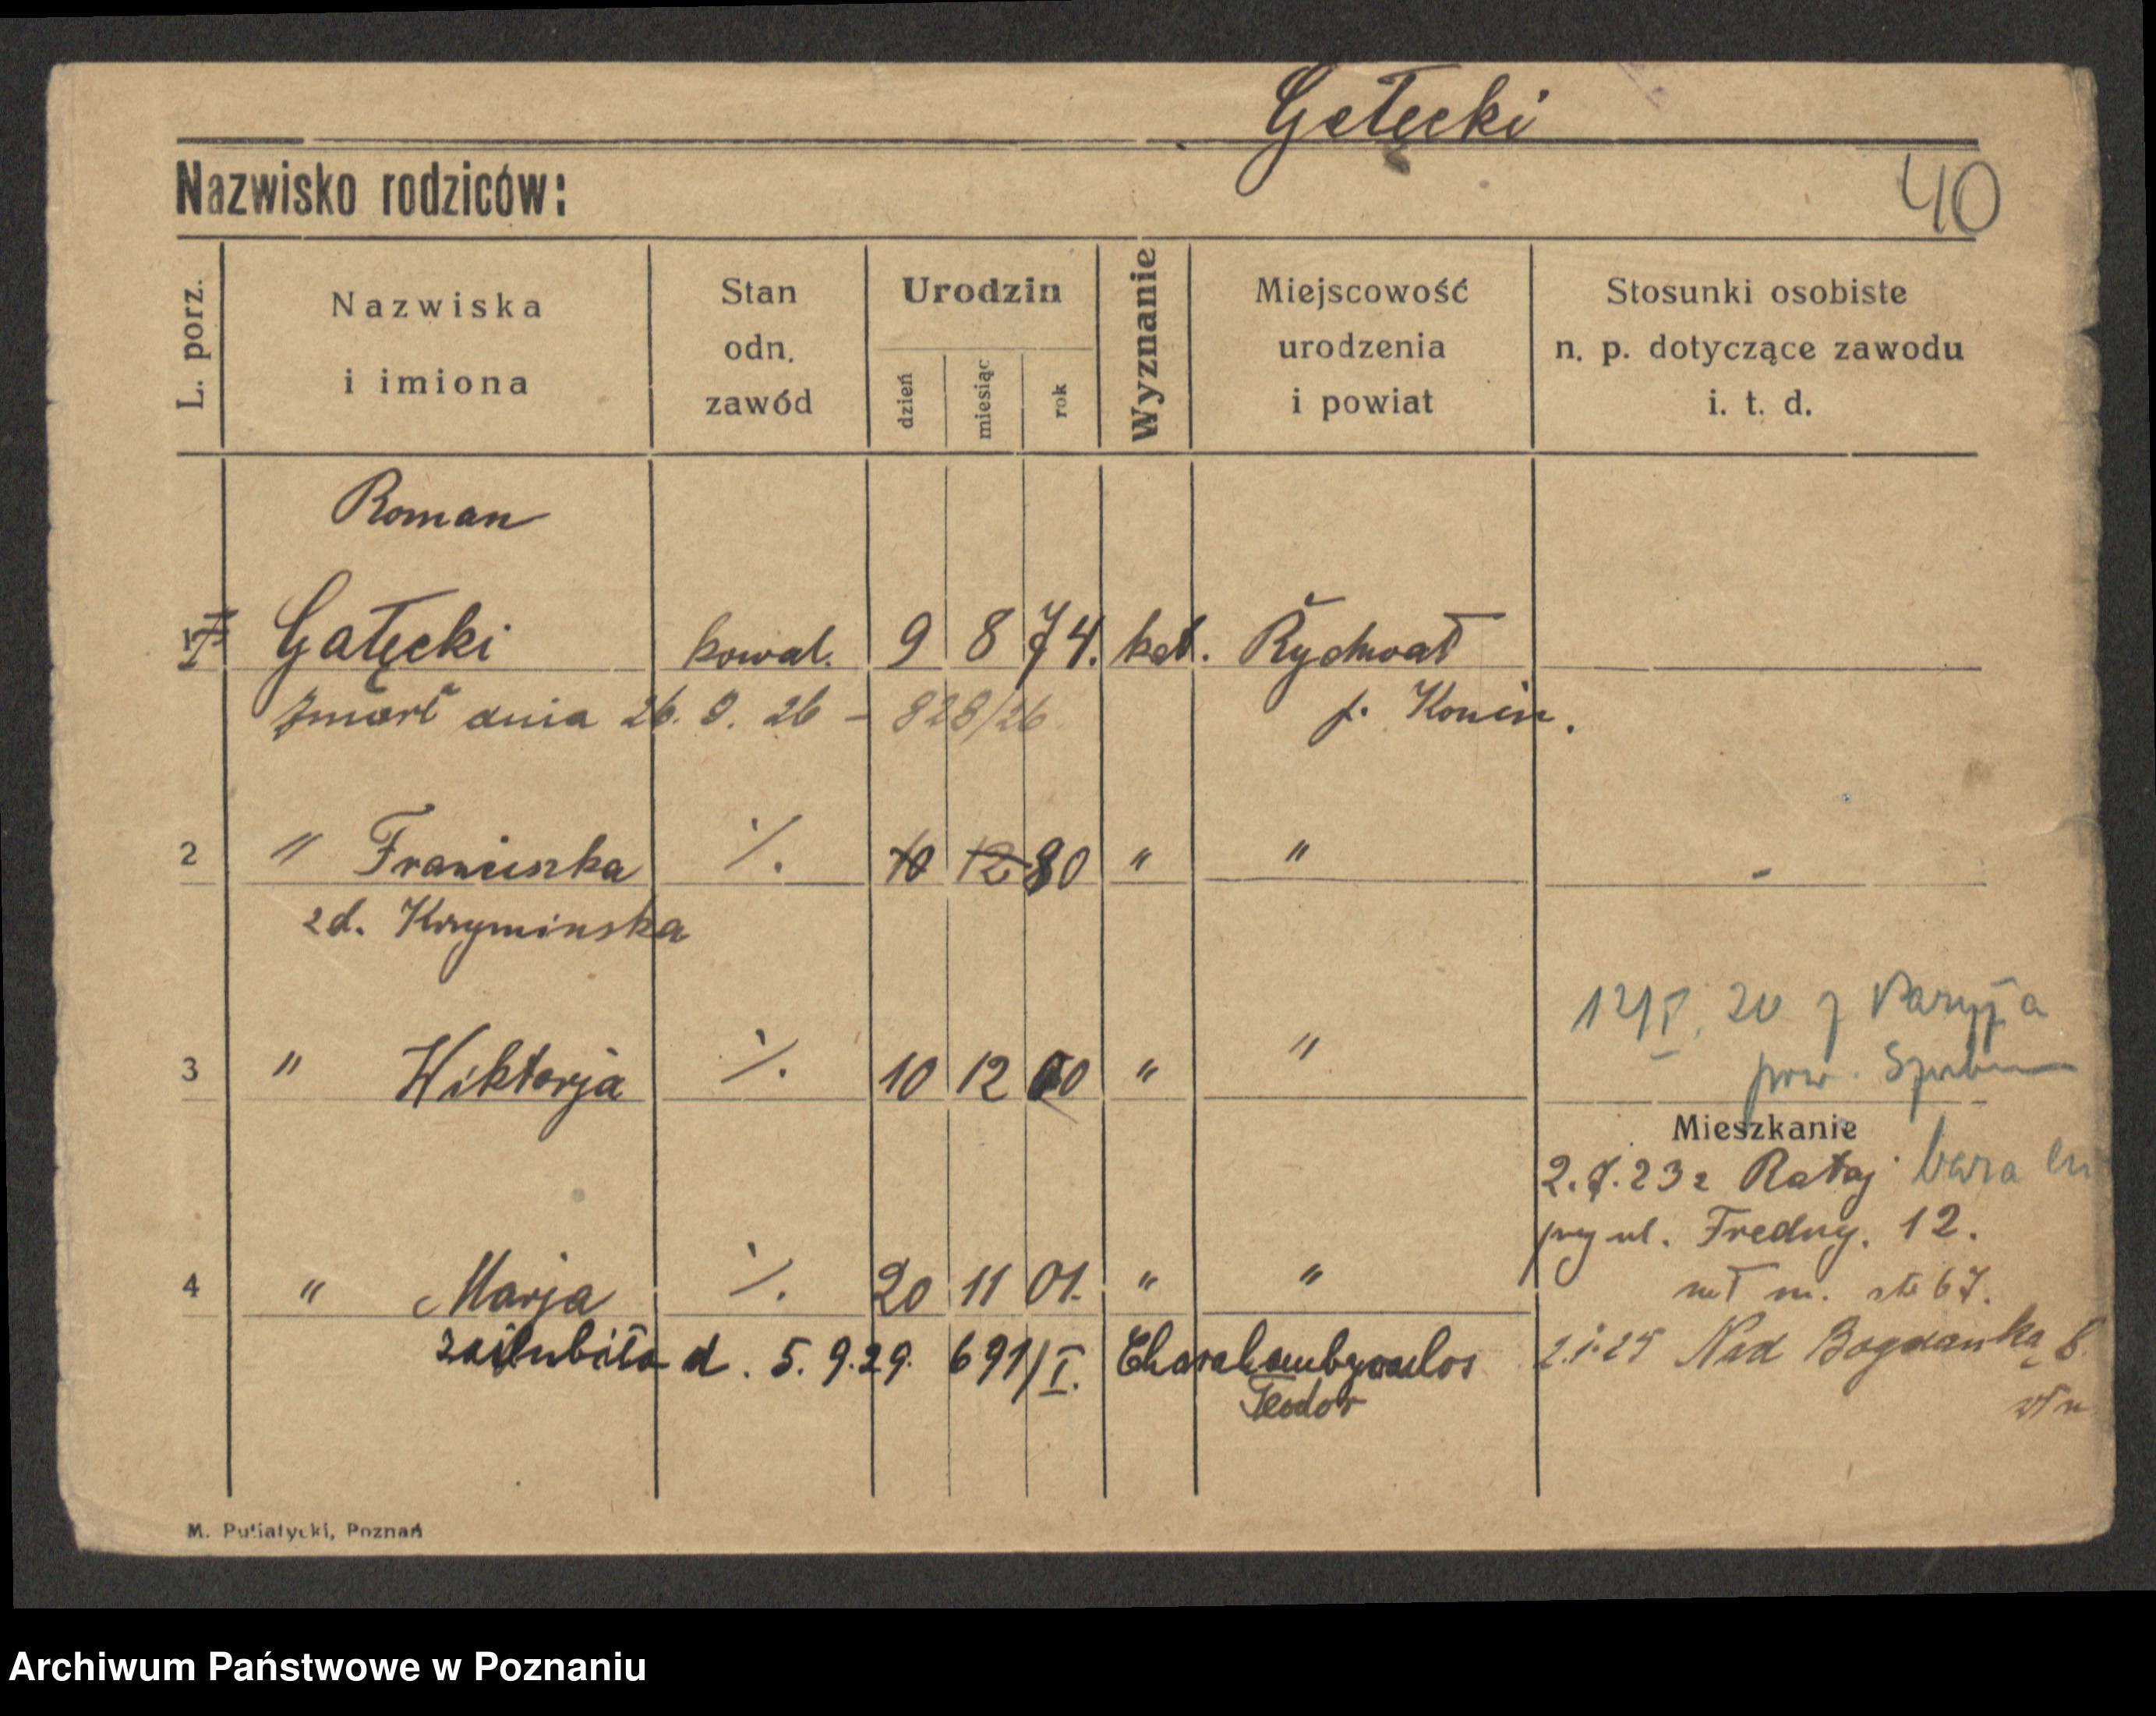 Gałęcki
Nazwisko rodziców:
40
L. porz.
Nazwiska
i imiona
Stan
odn.
zawód
Urodzin
dzień
miesiąc
rok
Wyznanie
Miejscowość
urodzenia
i powiat
Stosunki osobiste
n. p. dotyczące zawodu
i. t. d.
Roman
1 Gałęcki kowal. 9 8 74. kat. Rychwał
zmarł dnia 26. 8. 26 – 828/26 p. Konin.
2 " Franciszka ·/. 10 12 80 " "
zd. Krzyminska
12/I. 20 z
3 " Wiktorja ·/. 10 12 00 " "
pow. Szubin
Mieszkanie
2.7.23 z Rataj
przy ul. Fredry. 12.
4 " Marja ·/. 20 11 01. " "
m. 67.
zaślubiła d. 5. 9. 29. 691/I.
Teodor
Nad Bogdanką 6.
M. Putiatycki, Poznań
Archiwum Państwowe w Poznaniu